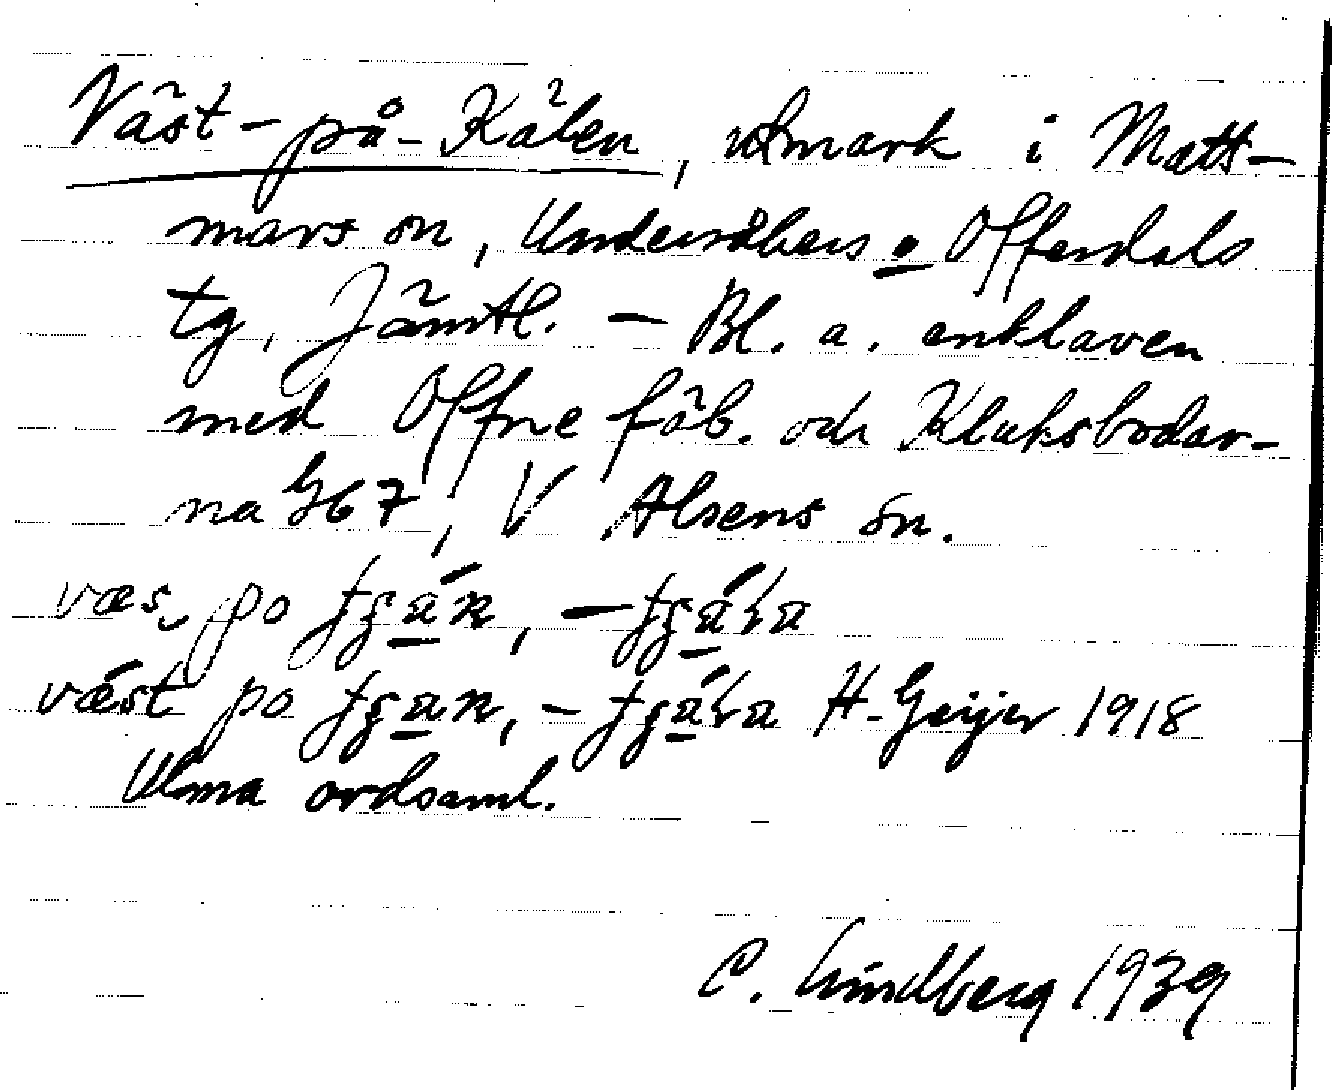 Väst-på-Kälen, utmark i Matt-
mars sn, Undersåkers o Offerdals
tg, Jämtl. – Bl. a. enklaven
med Offne fäb. och Kluksbodar-
na 967, V Alsens sn.
væs po
væst po H. Geijer 1918
Ulma ordsaml.
C. Lindberg 1939